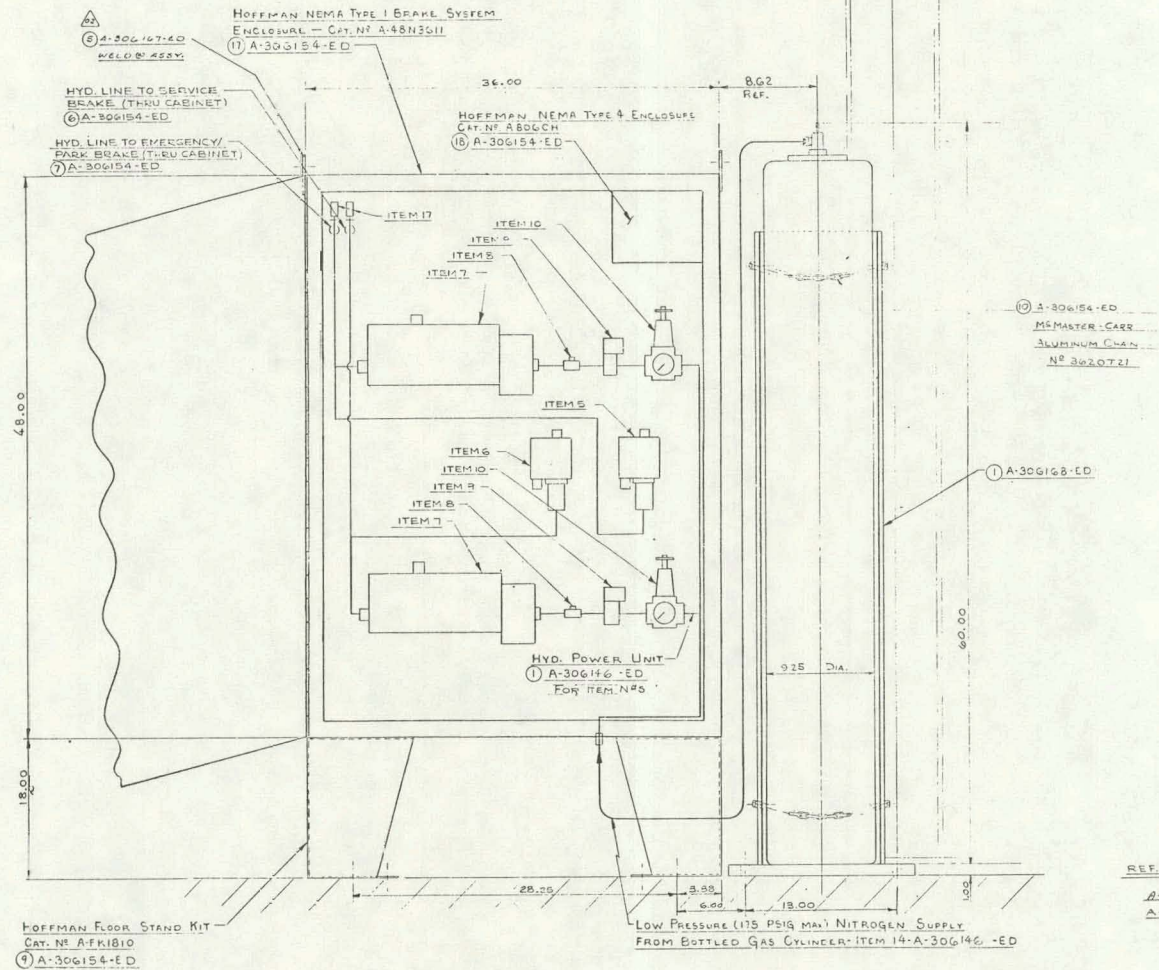 02
5 A-306167-ED
WELD'D ASSY.
HOFFMAN NEMA TYPE 1 BRAKE SYSTEM
ENCLOSURE - CAT. Nº A-48N3611
17 A-306154-ED
HYD. LINE TO SERVICE
BRAKE (THRU CABINET)
6 A-306154-ED
HYD. LINE TO EMERGENCY/
PARK BRAKE (THRU CABINET)
7 A-306154-ED
36.00
8.62
REF.
HOFFMAN NEMA TYPE 4 ENCLOSURE
CAT. Nº A806CH
18 A-306154-ED
ITEM 17
ITEM 10
ITEM 9
ITEM 8
ITEM 7
10 A-306154-ED
MCMASTER-CARR
ALUMINUM CHAIN
Nº 3620T21
48.00
ITEM 5
ITEM 6
ITEM 10
ITEM 9
ITEM 8
ITEM 7
1 A-306168-ED
60.00
9.25 DIA.
HYD. POWER UNIT
1 A-306146-ED
FOR ITEM Nºs
18.00
28.25
3.88
6.00
13.00
1.00
REF.
A-
A
HOFFMAN FLOOR STAND KIT
CAT. Nº A-FK1810
9 A-306154-ED
LOW PRESSURE (175 PSIG MAX) NITROGEN SUPPLY
FROM BOTTLED GAS CYLINDER-ITEM 14-A-306146-ED